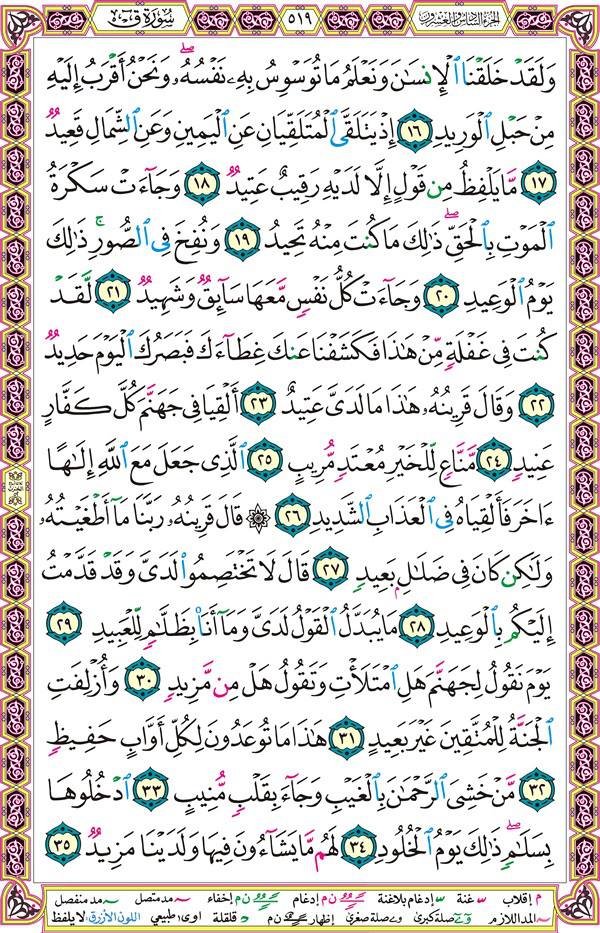 الجزء السادس والعشرون ٥١٩ سُورَة قٓ
وَلَقَدْ خَلَقْنَا ٱلْإِنسَـٰنَ وَنَعْلَمُ مَا تُوَسْوِسُ بِهِۦ نَفْسُهُۥ ۖ وَنَحْنُ أَقْرَبُ إِلَيْهِ
مِنْ حَبْلِ ٱلْوَرِيدِ ١٦ إِذْ يَتَلَقَّى ٱلْمُتَلَقِّيَانِ عَنِ ٱلْيَمِينِ وَعَنِ ٱلشِّمَالِ قَعِيدٌ
١٧ مَّا يَلْفِظُ مِن قَوْلٍ إِلَّا لَدَيْهِ رَقِيبٌ عَتِيدٌ ١٨ وَجَآءَتْ سَكْرَةُ
ٱلْمَوْتِ بِٱلْحَقِّ ۖ ذَٰلِكَ مَا كُنتَ مِنْهُ تَحِيدُ ١٩ وَنُفِخَ فِى ٱلصُّورِ ۚ ذَٰلِكَ
يَوْمُ ٱلْوَعِيدِ ٢٠ وَجَآءَتْ كُلُّ نَفْسٍ مَّعَهَا سَآئِقٌ وَشَهِيدٌ ٢١ لَّقَدْ
كُنتَ فِى غَفْلَةٍ مِّنْ هَـٰذَا فَكَشَفْنَا عَنكَ غِطَآءَكَ فَبَصَرُكَ ٱلْيَوْمَ حَدِيدٌ
٢٢ وَقَالَ قَرِينُهُۥ هَـٰذَا مَا لَدَىَّ عَتِيدٌ ٢٣ أَلْقِيَا فِى جَهَنَّمَ كُلَّ كَفَّارٍ
عَنِيدٍ ٢٤ مَّنَّاعٍ لِّلْخَيْرِ مُعْتَدٍ مُّرِيبٍ ٢٥ ٱلَّذِى جَعَلَ مَعَ ٱللَّهِ إِلَـٰهًا
ءَاخَرَ فَأَلْقِيَاهُ فِى ٱلْعَذَابِ ٱلشَّدِيدِ ٢٦ ۞ قَالَ قَرِينُهُۥ رَبَّنَا مَآ أَطْغَيْتُهُۥ
وَلَـٰكِن كَانَ فِى ضَلَـٰلٍۭ بَعِيدٍ ٢٧ قَالَ لَا تَخْتَصِمُوا۟ لَدَىَّ وَقَدْ قَدَّمْتُ
إِلَيْكُم بِٱلْوَعِيدِ ٢٨ مَا يُبَدَّلُ ٱلْقَوْلُ لَدَىَّ وَمَآ أَنَا۠ بِظَلَّـٰمٍ لِّلْعَبِيدِ ٢٩
يَوْمَ نَقُولُ لِجَهَنَّمَ هَلِ ٱمْتَلَأْتِ وَتَقُولُ هَلْ مِن مَّزِيدٍ ٣٠ وَأُزْلِفَتِ
ٱلْجَنَّةُ لِلْمُتَّقِينَ غَيْرَ بَعِيدٍ ٣١ هَـٰذَا مَا تُوعَدُونَ لِكُلِّ أَوَّابٍ حَفِيظٍ
٣٢ مَّنْ خَشِىَ ٱلرَّحْمَـٰنَ بِٱلْغَيْبِ وَجَآءَ بِقَلْبٍ مُّنِيبٍ ٣٣ ٱدْخُلُوهَا
بِسَلَـٰمٍ ۖ ذَٰلِكَ يَوْمُ ٱلْخُلُودِ ٣٤ لَهُم مَّا يَشَآءُونَ فِيهَا وَلَدَيْنَا مَزِيدٌ ٣٥
م إقلاب غنة إدغام بلاغنة ن م إدغام ن م إخفاء مد متصل مد منفصل
المد اللازم صلة كبرى صلة صغرى إظهار ن م قلقلة اوى طبيعي اللون الأزرق: لا يلفظ